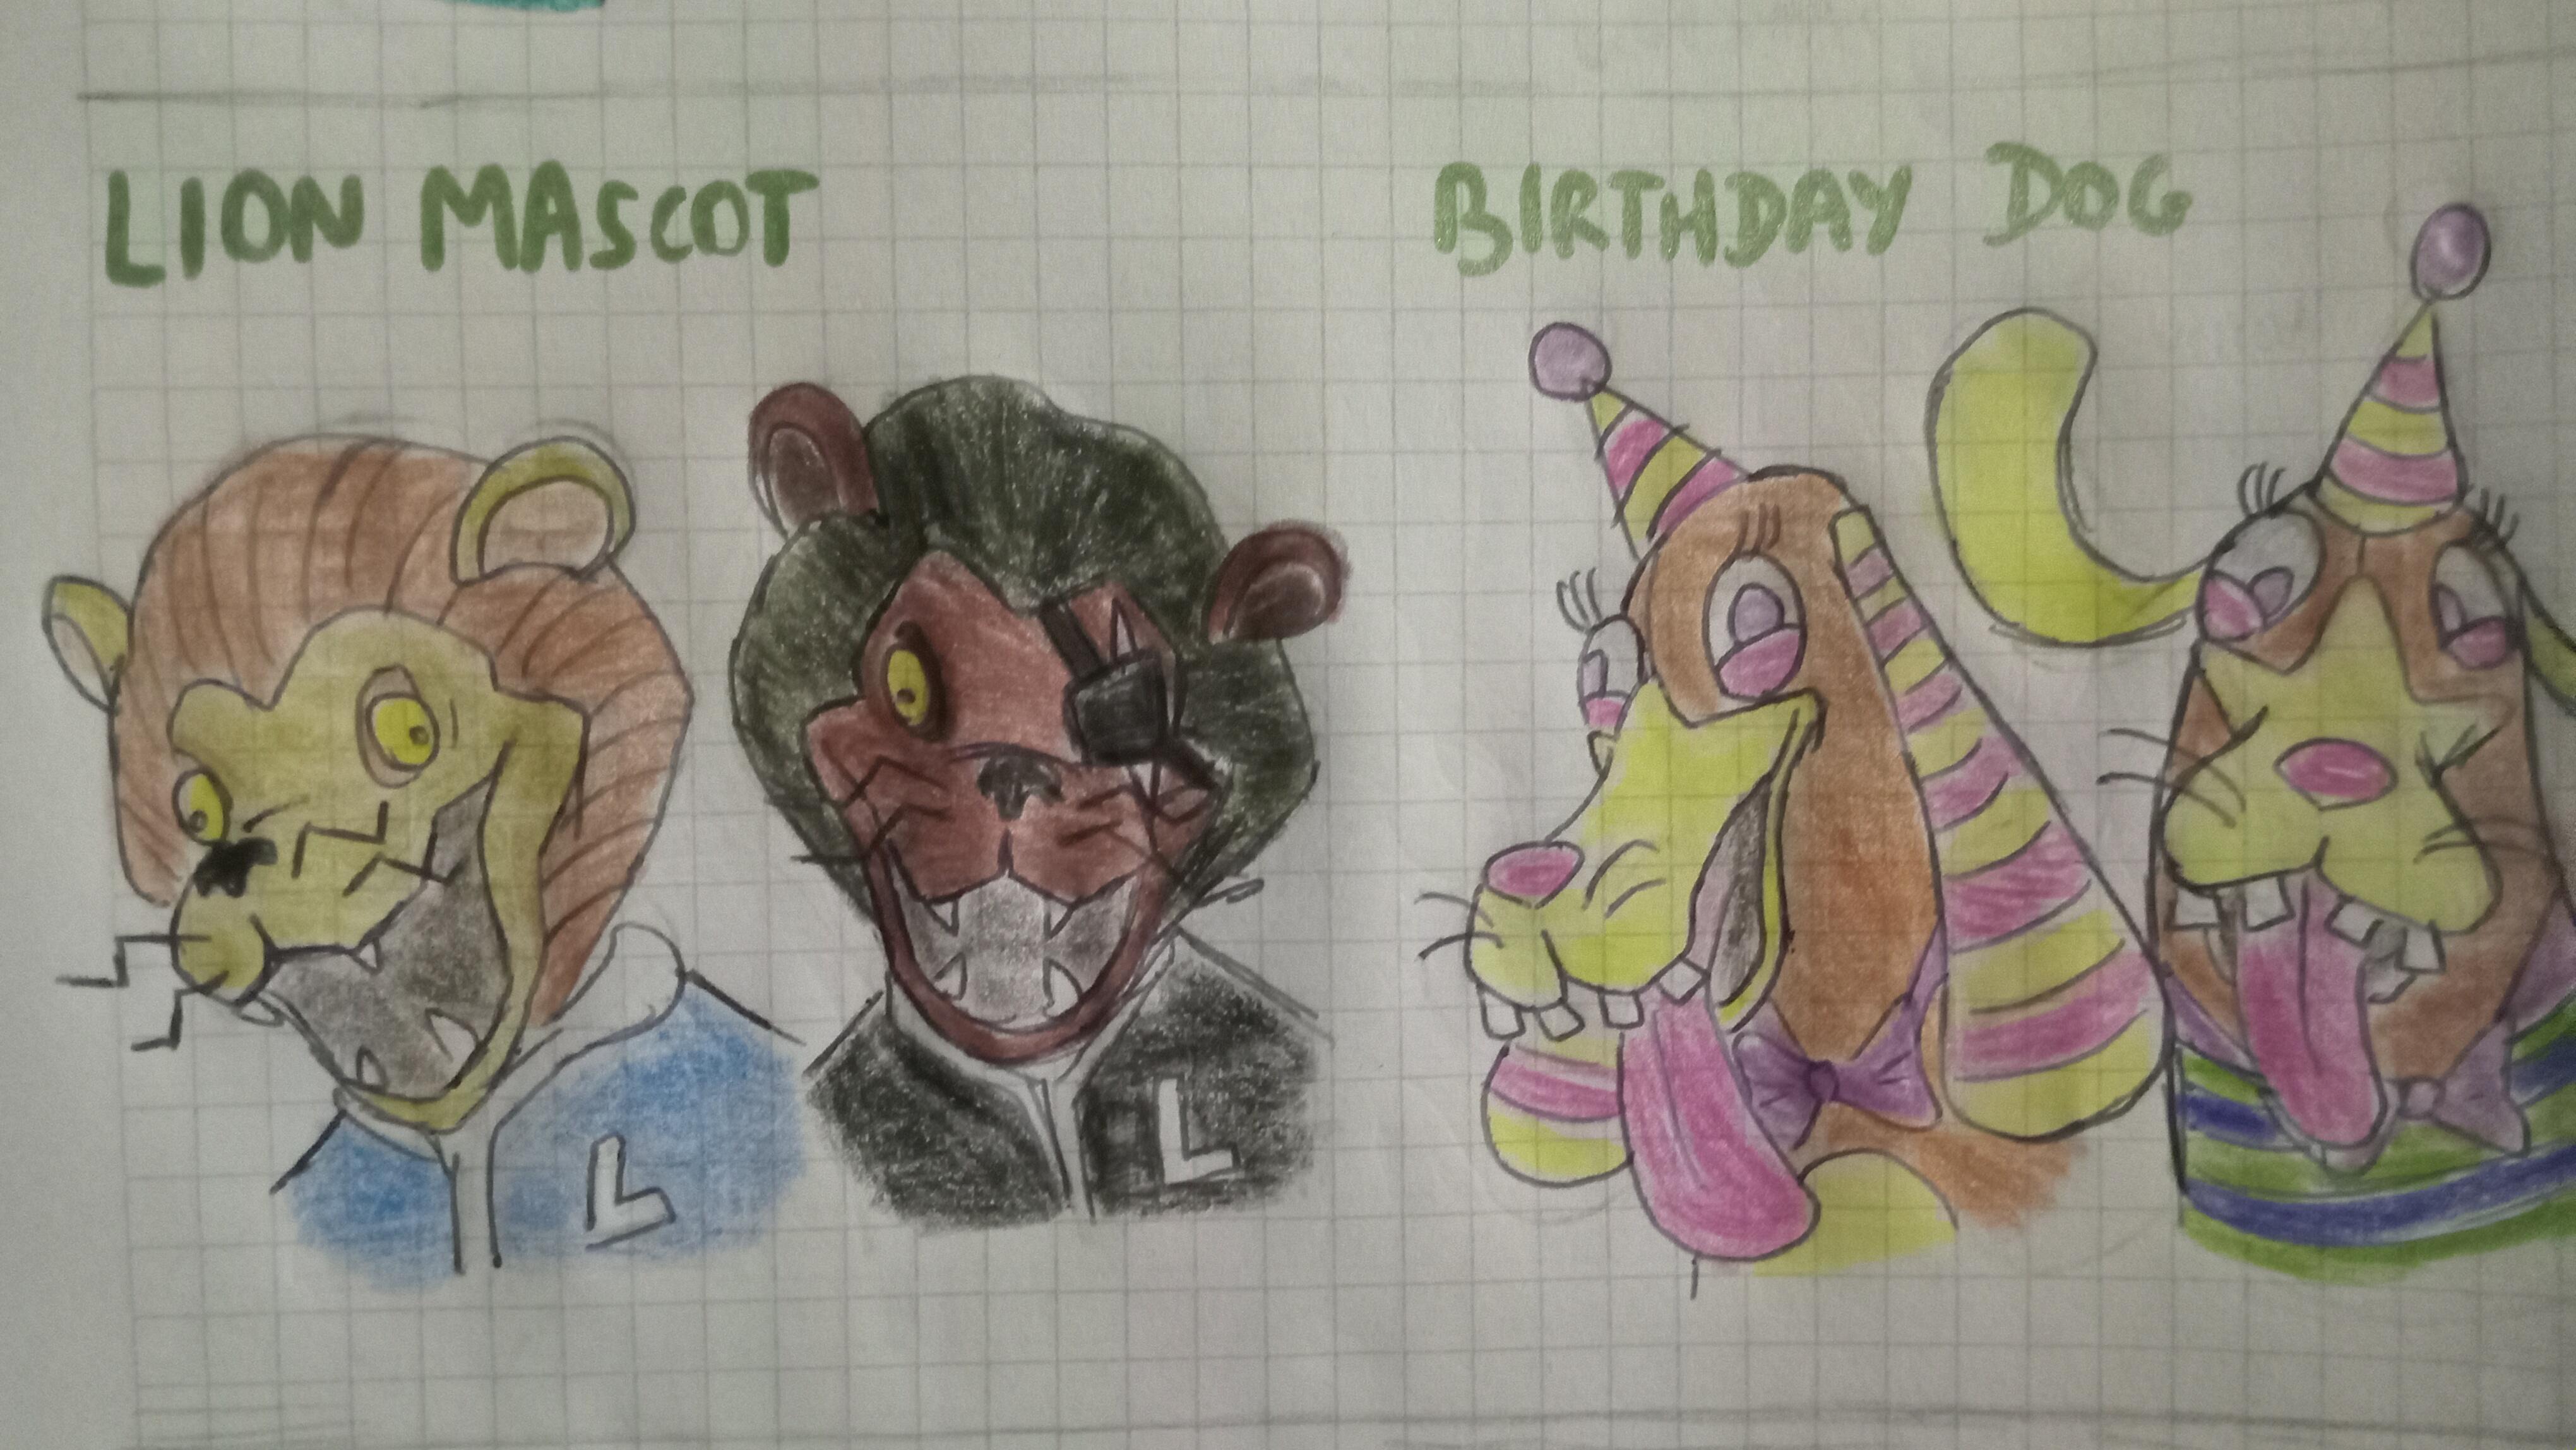 LION MASCOT
BIRTHDAY DOG
L
L